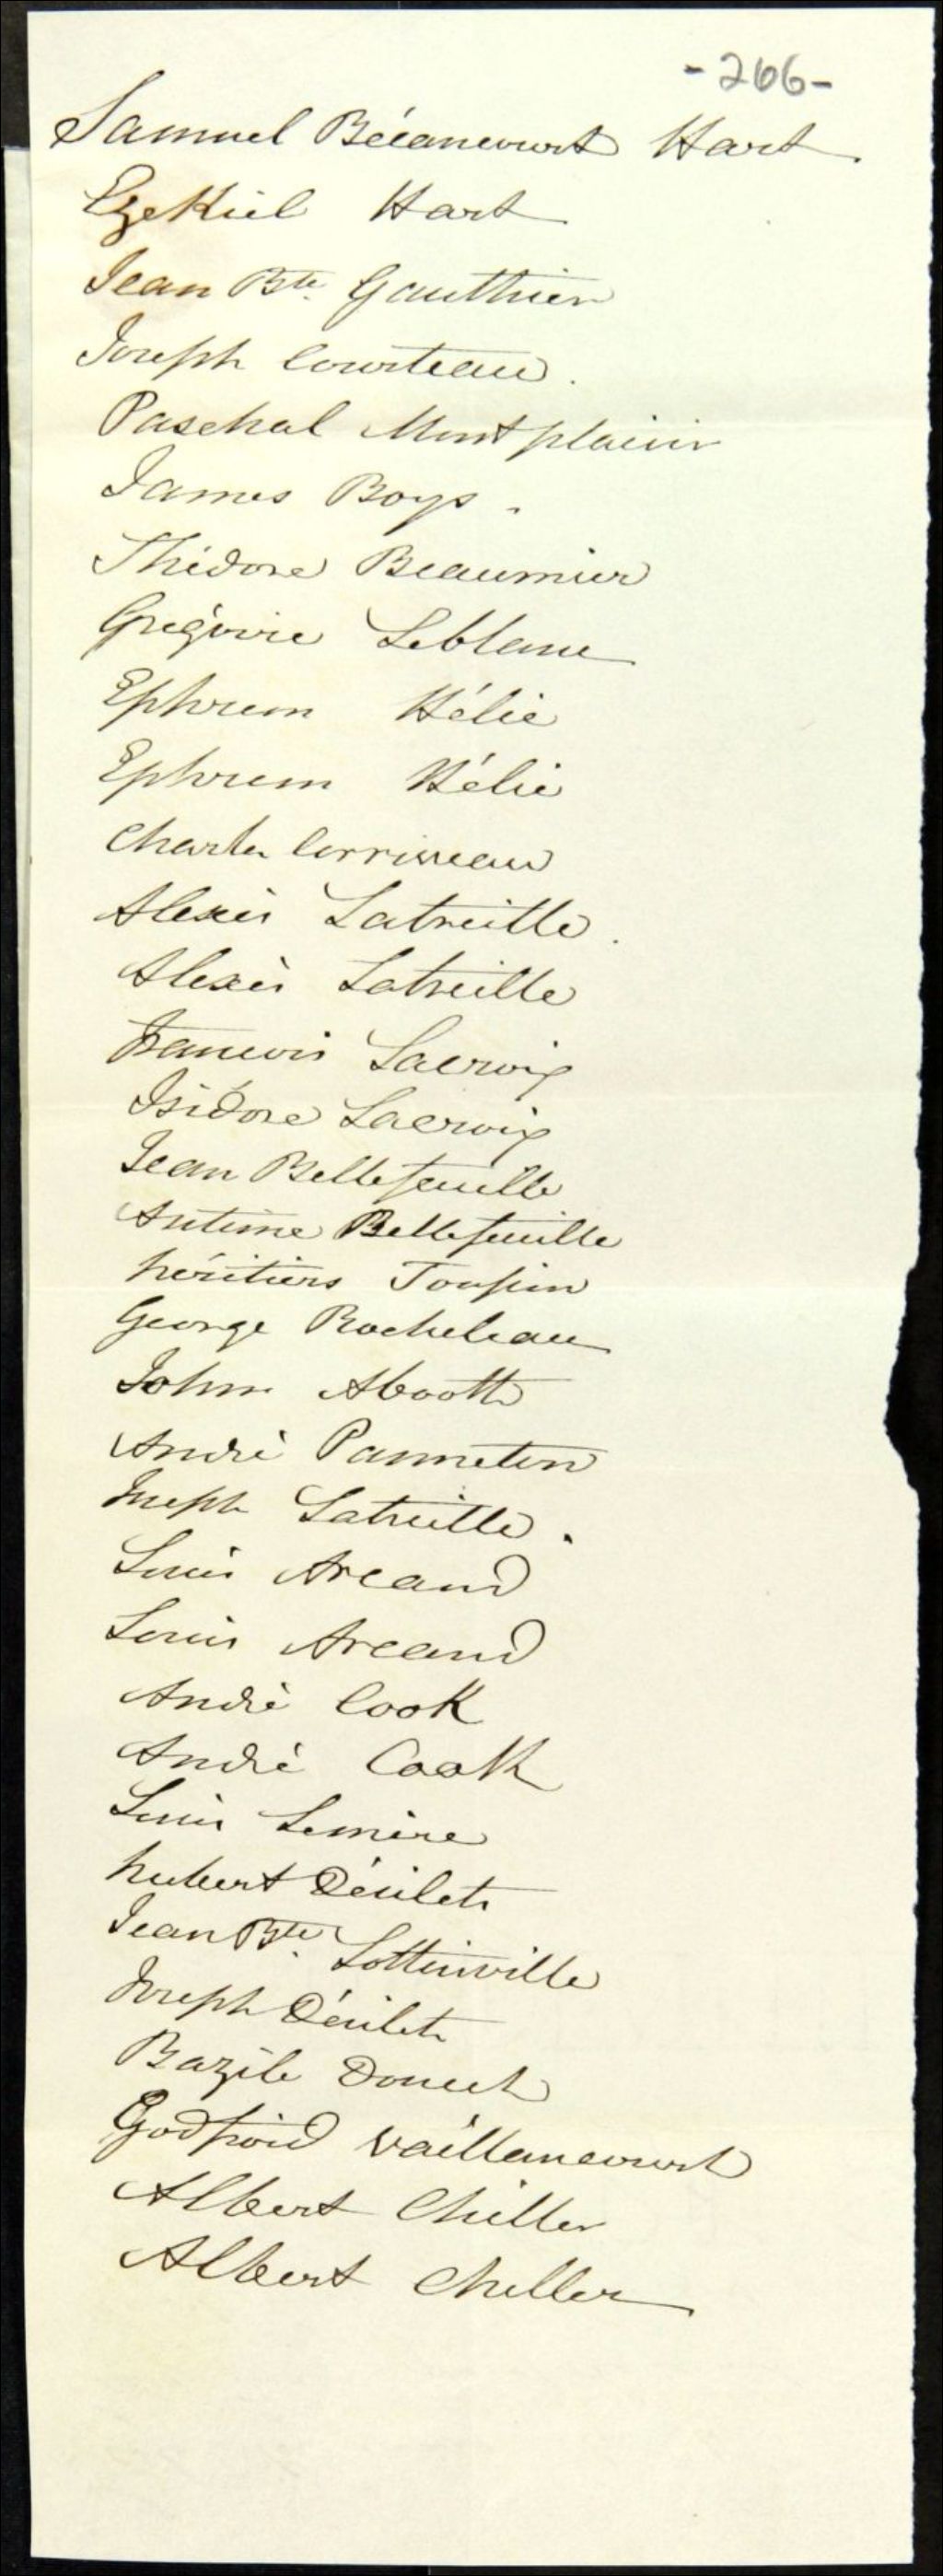 -266-
Samuel Bécancourt Hart
Ezekiel Hart
Jean Bte. Gauthier
Joseph Courteau.
Paschal Montplaisir
James Boys.
Théodore Beaumier
Grégoire Leblanc
Ephrem Hélie
Ephrem Hélie
Charles Corriveau
Alexis Latreille.
Alexis Latreille
Francois Lacroix
Isidore Lacroix
Jean Bellefeuille
Antime Bellefeuille
héritiers Toupin
George Rocheleau
John Abootte
André Panneton
Joseph Latreille.
Louis Arcand
Louis Arcand
André Cook
André Cook
Louis Lemire
hubert Désilets
Jean Bte. Lottinville
Joseph Désilets
Bazile Doucet
Godfroid Vaillancourt
Albert Chiller
Albert Chiller